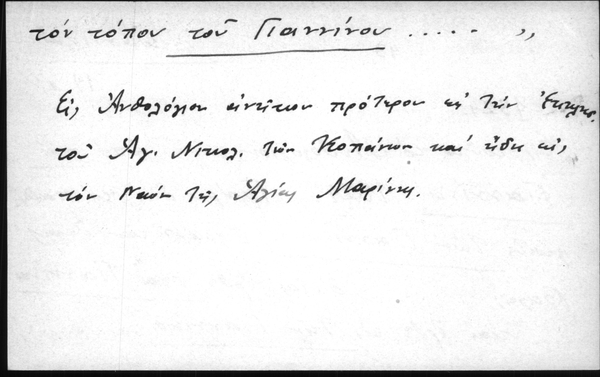 τόν τόπου τοῦ Γιαννίνου ..... ,,
Εἰς Ἀνθολόγιον πρότερον εἰς τήν Ἐκκλησ.
τοῦ Ἁγ. Νικολ. τῶν Κοπάνων καί ἤδη εἰς
τόν Ναόν τῆς Ἁγίας Μαρίνης.